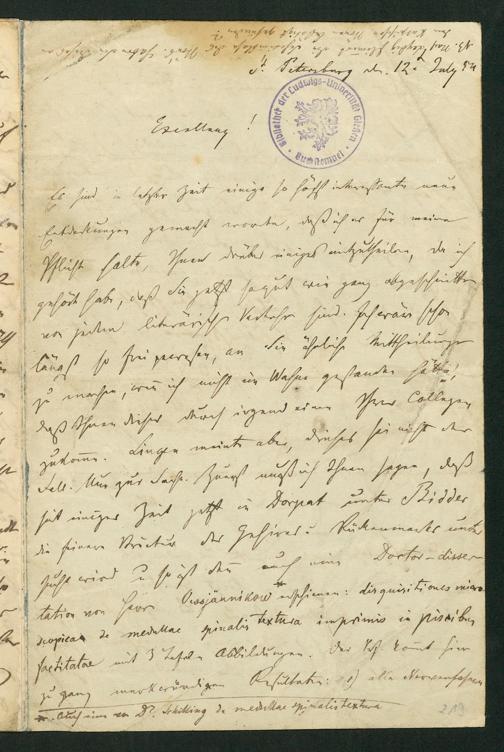 St. Petersburg den 12ⁿ July 54
Bibliothek der Ludwigs-Universität Gießen
Buchstempel
Excellenz!
Es sind in letzter Zeit einige so höchst interessante neue
Entdeckungen gemacht worden, daß ich es für meine
Pflicht halte, Ihnen drüber einiges mitzutheilen, da ich
gehört habe, daß Sie jetzt so gut wie ganz abgeschnitten
von jedem literärischen Verkehr sind. Ich wäre schon
längst so frei gewesen, an Sie ähnliche Mittheilungen
zu machen, wenn ich nicht im Wahne gestanden hätte,
daß Ihnen dieses durch irgend einen Ihrer Collegen
zukomme. Lingen meinte aber, dieses sei nicht der
Fall. Nun zur Sache. Zuerst muß ich Ihnen sagen, daß
seit einiger Zeit jetzt in Dorpat unter Bidder
die feinere Structur des Gehirns u Rückenmarks unter-
sucht wird u so ist denn auch eine Doctor-disser-
tation von Herrn Owsjannikow* erschienen: disquisitiones micro-
scopicae de medullae spinalis textura imprimis in piscibus
factitatae mit 3 Tafeln Abbildungen. Der Vf kommt hier
zu ganz merkwürdigen Resultaten: 1) alle Nervenfasern
*. Auch eine von Dr. Schilling de medullae spinalis textura
213